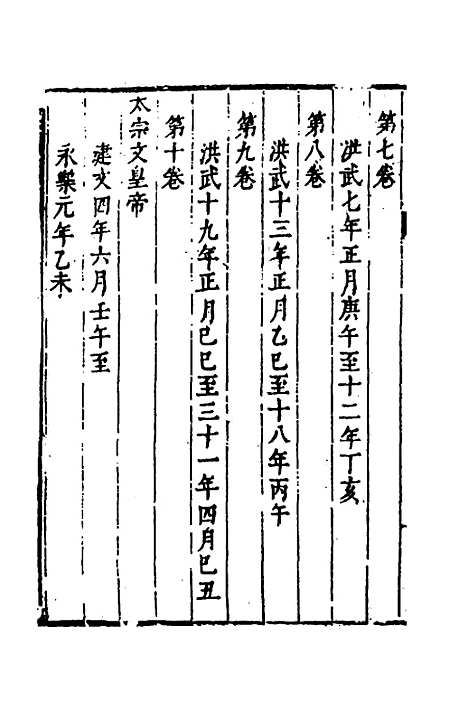 第七卷
洪武七年正月庚午至十二年丁亥
第八卷
洪武十三年正月乙巳至十八年丙午
第九卷
洪武十九年正月巳巳至三十一年四月巳丑
第十卷
太宗文皇帝
建文四年六月壬午至
永樂元年乙未